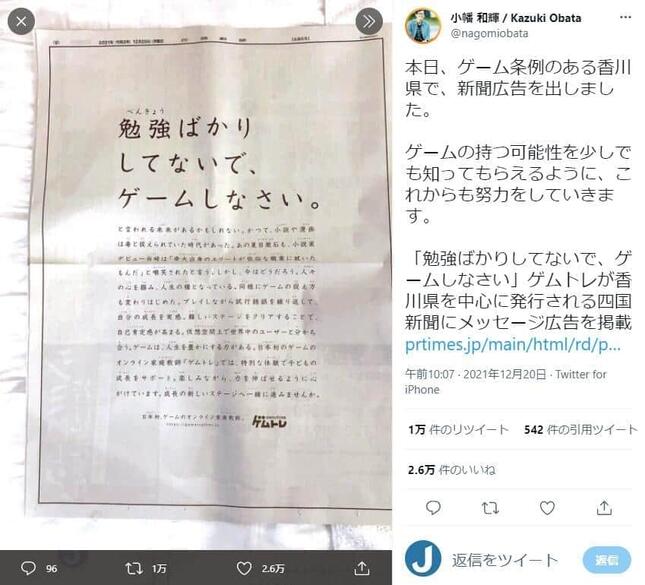 べんきょう
勉強ばかり
してないで、
ゲームしなさい。
と言われる未来があるかもしれない。かつて、小説や漫画
は毒と捉えられていた時代があった。あの夏目漱石も、小説家
デビュー当時は「帝大出身のエリートが低俗な職業に就いた
もんだ」と嘲笑されたと言う。しかし、今はどうだろう。人々
の心を掴み、人生の糧となっている。同様にゲームの捉え方
も変わりはじめた。プレイしながら試行錯誤を繰り返して、
自分の成長を実感。難しいステージをクリアすることで、
自己肯定感が高まる。仮想空間上で世界中のユーザーと分かち
合う。ゲームは、人生を豊かにする力がある。日本初のゲームの
オンライン家庭教師「ゲムトレ」では、特別な体験で子どもの
成長をサポート。楽しみながら、力を伸ばせるように心
がけています。成長の新しいステージへ一緒に進みませんか。
日本初、ゲームのオンライン家庭教師。
ゲムトレ
96
1万
2.6万
小幡 和輝 / Kazuki Obata
@nagomiobata
本日、ゲーム条例のある香川
県で、新聞広告を出しまし
た。
ゲームの持つ可能性を少しで
も知ってもらえるように、こ
れからも努力をしていきま
す。
「勉強ばかりしてないで、ゲ
ームしなさい」ゲムトレが香
川県を中心に発行される四国
新聞にメッセージ広告を掲載
prtimes.jp/main/html/rd/p...
午前10:07 · 2021年12月20日 · Twitter for
iPhone
1万 件のリツイート 542 件の引用ツイート
2.6万 件のいいね
J
返信をツイート
返信